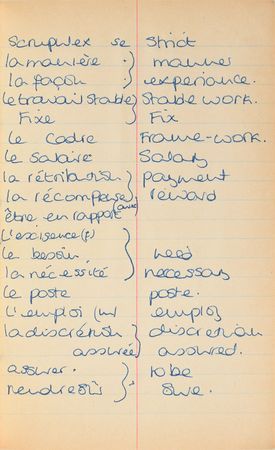 scrupulex se strict
la manière } manner
la façon } experience.
le travail stable } Stable work.
Fixe } Fix
le Cadre Frame-work.
le salaire Salary
la rétribution } payment
la récompense } reward
être en rapport (avec
L'exigence (f)
le besoin } need
la nécessité } necessary
le poste poste.
L'emploi (m) employ
la discrétion } discretion
assurée } assured.
assurer. } to be
rendre sûr } sure.